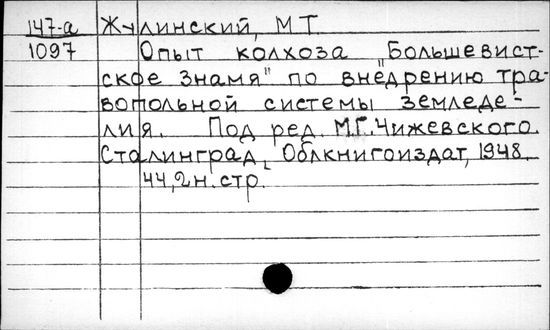 147-а Жулинский, М Т
1097 Опыт колхоза "Большевист-
ское знамя" по внедрению тра-
вопольной системы земледе-
лия. Под ред. М.Г. Чижевского.
Сталинград, Облкнигоиздат, 1948.
44, 2 н. стр.